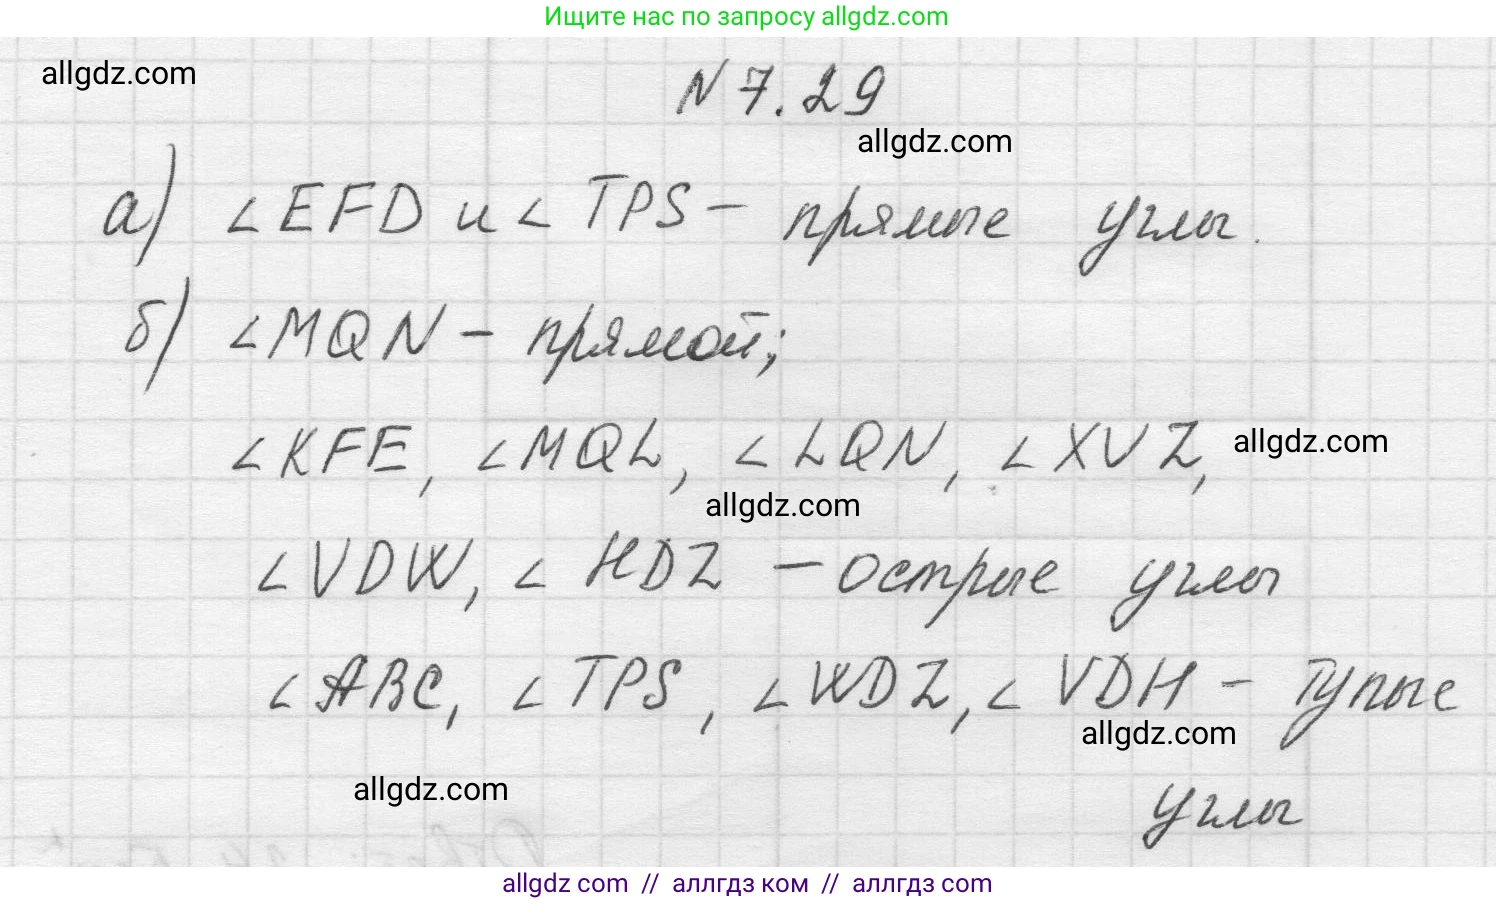 Ищите нас по запросу allgdz.com
allgdz.com
N 7.29
allgdz.com
а) ∠EFD и ∠TPS – прямые углы.
б) ∠MQN – прямой;
∠KFE, ∠MQL, ∠LQN, ∠XVZ,
allgdz.com
allgdz.com
∠VDW, ∠HDZ – острые углы
∠ABC, ∠TPS, ∠WDZ, ∠VDH – тупые
allgdz.com
allgdz.com
углы
allgdz com // аллгдз ком // аллгдз com